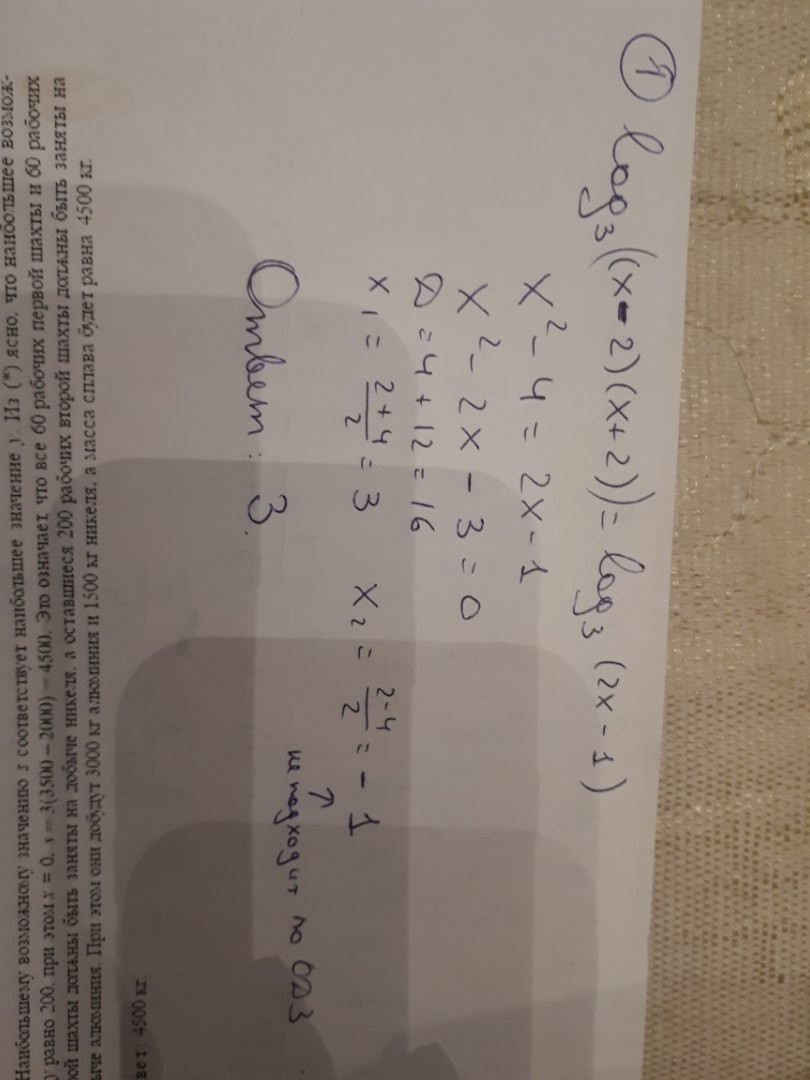 ① log₃((x-2)(x+2)) = log₃(2x-1)
x² - 4 = 2x - 1
x² - 2x - 3 = 0
D = 4 + 12 = 16
x₁ = (2+4)/2 = 3 x₂ = (2-4)/2 = -1
↑
не подходит по ОДЗ
Ответ: 3.
вет: 4500 кг.
ыче алюминия. При этом они добудут 3000 кг алюминия и 1500 кг никеля, а масса сплава будет равна 4500 кг.
рой шахты должны быть заняты на добыче никеля, а оставшиеся 200 рабочих второй шахты должны быть заняты на
у равно 200, при этом x = 0, s = 3(3500 − 2000) = 4500. Это означает, что все 60 рабочих первой шахты и 60 рабочих
Наибольшему возможному значению s соответствует наибольшее значение y. Из (*) ясно, что наибольшее возмож-